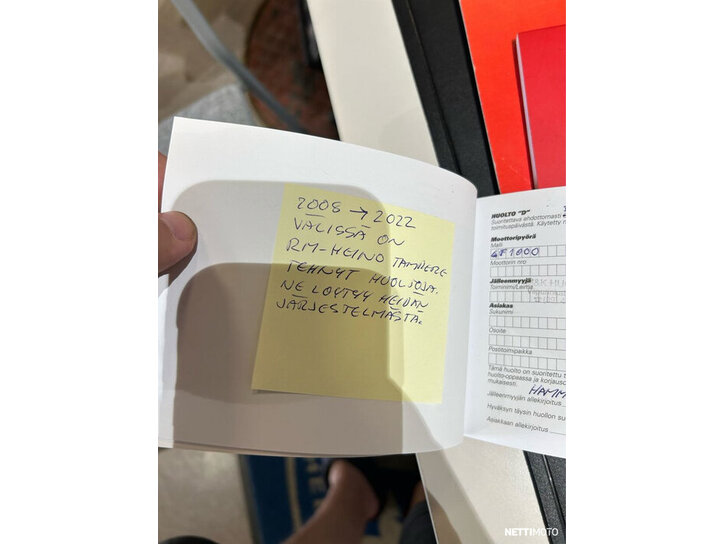 2008 → 2022
VÄLISSÄ ON
RM-HEINO TAMPERE
TEHNYT HUOLTOJA.
NE LÖYTYY HEIDÄN
JÄRJESTELMÄSTÄ.
HUOLTO "D"
Suoritettava ehdottomasti
toimituspäivästä. Käytetty
Moottoripyörä
Malli
Moottorin nro
Jälleenmyyjä
Toiminimi/Leima
Asiakas
Sukunimi
Osoite
Postitoimipaikka
Tämä huolto on suoritettu
huolto-oppaassa ja
mukaisesti.
Jälleenmyyjän allekirjoitus
Hyväksyn täysin huollon
Asiakkaan allekirjoitus
NETTIMOTO